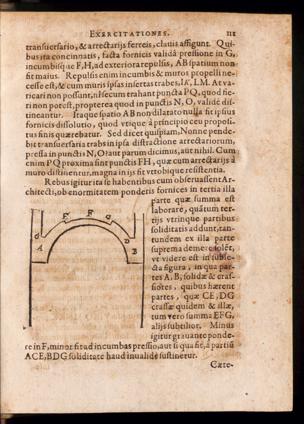 EXERCITATIONES. III
transuersario, & arrectarijs ferreis, clauis affigunt. Qui-
bus ita concinnatis, facta fornicis validâ pressione in G,
incumbis￫que F, H, ad exteriora repulsis, AB spatium non
fit maius. Repulsis enim incumbis & muros propelli ne-
cesse est, & cum muris ipsas insertas trabes, IK, LM. At va-
ricari non possunt, nisi secum trahant puncta PQ, quod fie-
ri non potest, propterea quod in punctis N, O, validè di-
stineantur. Itaque spatio AB non dilatato nulla fit ipsius
fornicis dissolutio, quod vtique à principio ceu proposi-
tus finis quærebatur. Sed dicet quispiam, Nonne pende-
bit transuersaria trabs in ipsa distractione arrectariorum,
pressa in punctis N, O? aut parum dicimus, aut nihil. Cum
enim PQ proxima sint punctis FH, quæ cum arrectarijs à
muro distinentur, magna in ijs fit vtrobique resistentia.
Rebus igitur ita se habentibus cum obseruassent Ar-
chitecti, ob enormitatem ponderis fornices in tertia illa
parte quæ summa est
laborare, quātum ter-
tijs vtrinque partibus
soliditatis addunt, tan-
tundem ex illa parte
suprema demere solēt,
vt videre est in subie-
cta figura, in qua par-
tes A, B, solidæ & cras-
siores, quibus hærent
partes, quæ CE, DG
crassæ quidem & illæ,
tum vero summa EFG,
alijs subtilior. Minus
igitur grauante ponde-
re in F, minor fit ad incumbas pressio, aut si qua fit, à partiū
ACE, BDG soliditate haud inualidè sustinetur.
Cæte-
E F F G
C D
A B